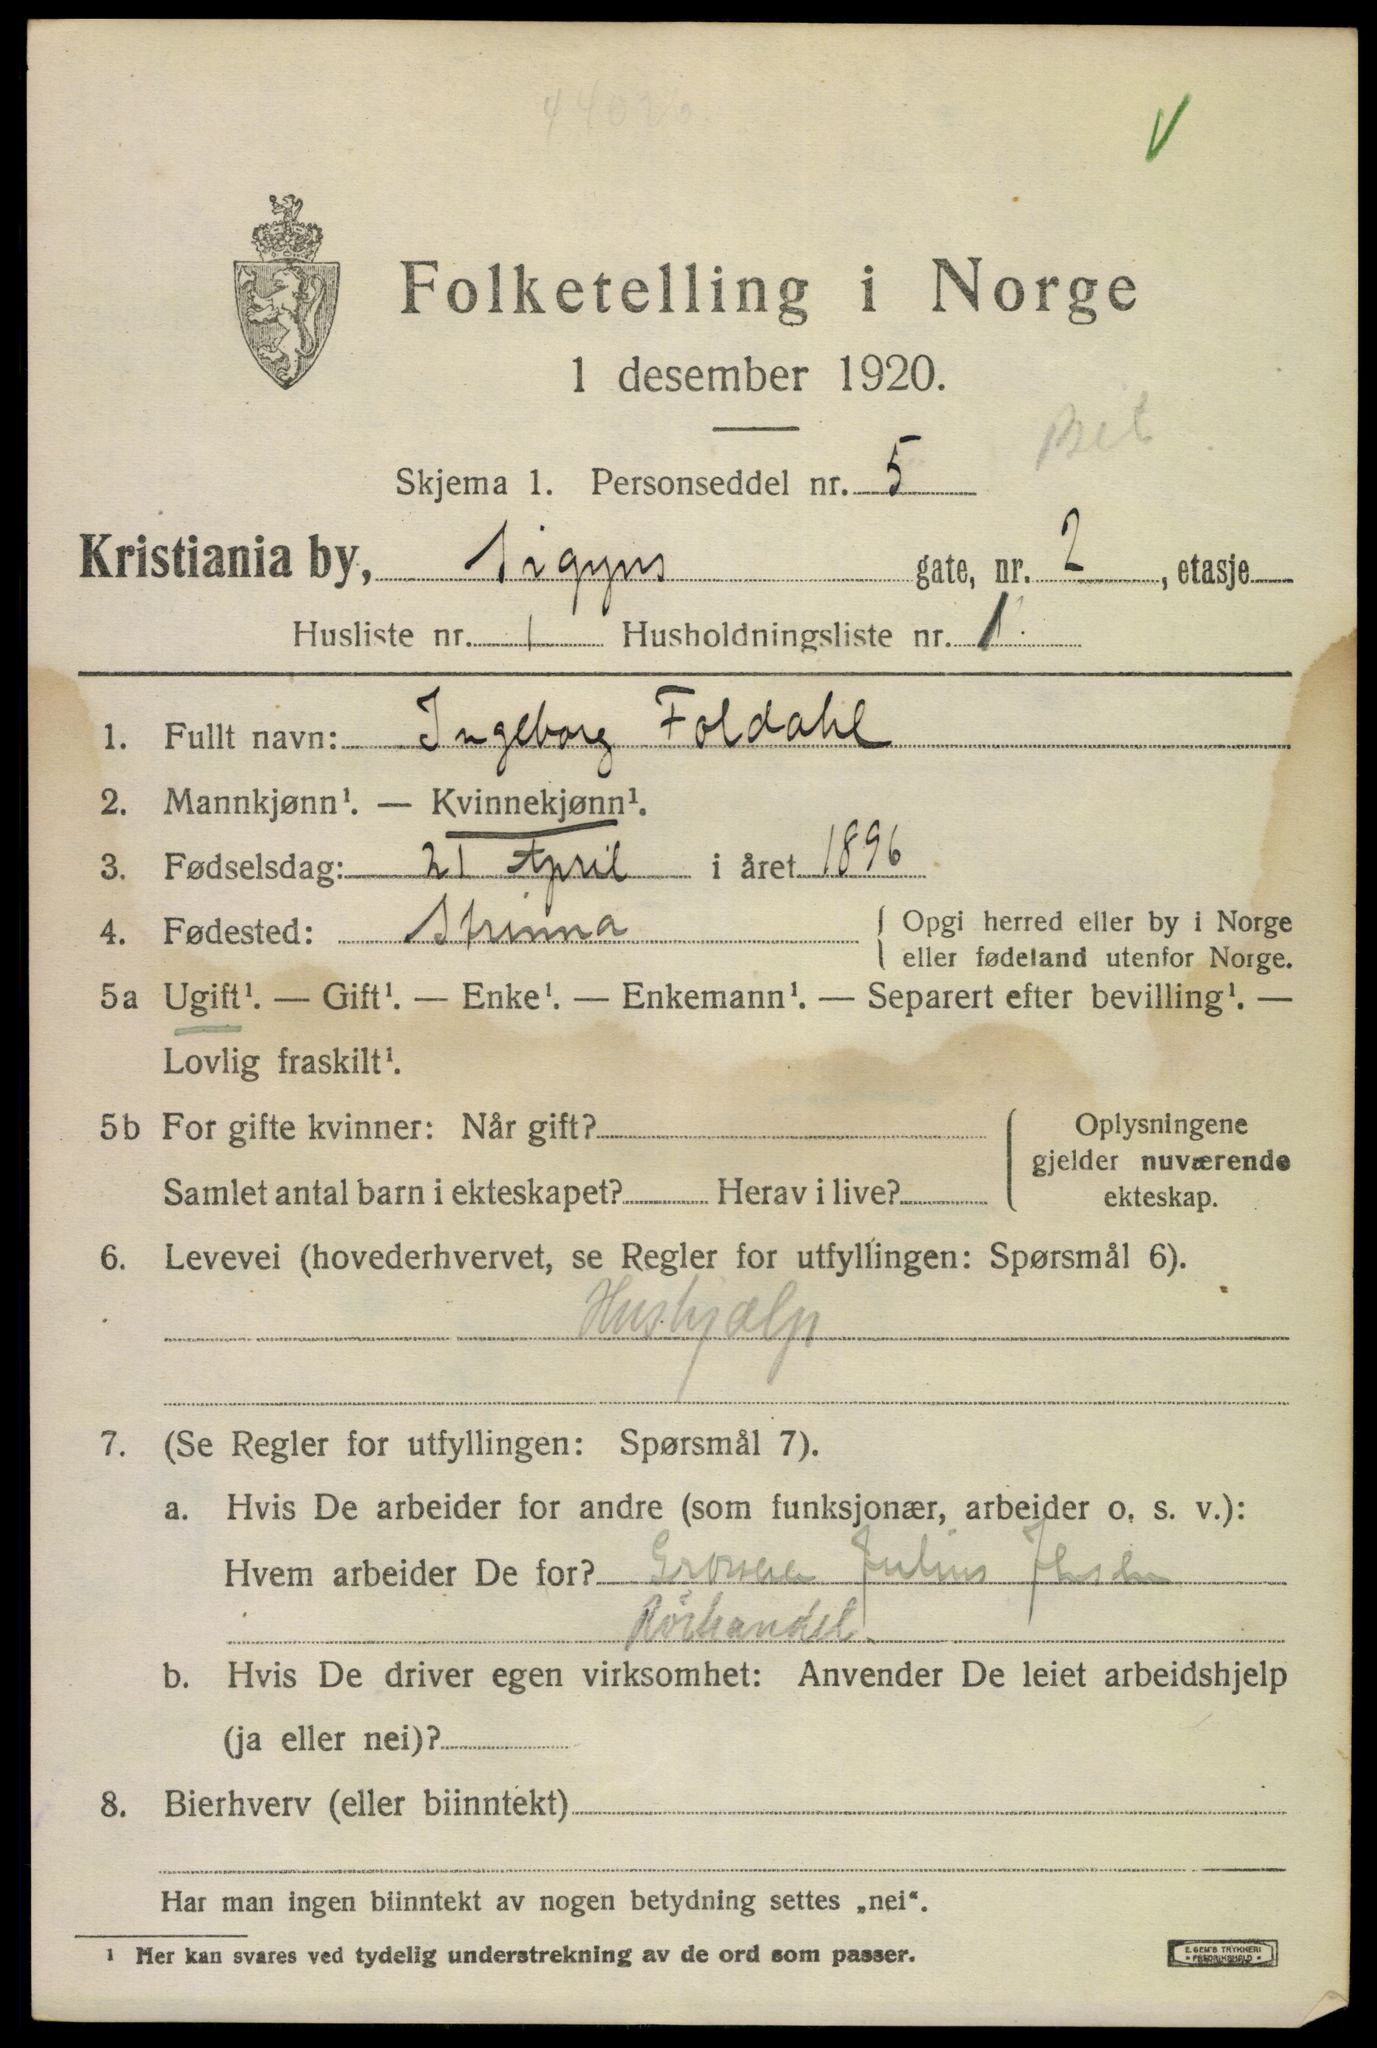 44026
V
Folketelling i Norge
1 desember 1920.
Skjema 1. Personseddel nr. 5
Kristiania by, Sigyns gate, nr. 2, etasje
Husliste nr. 1 Husholdningsliste nr. 1.
1. Fullt navn: Ingeborg Foldahl
2. Mannkjønn¹. — Kvinnekjønn¹.
3. Fødselsdag: 21 April i året 1896
4. Fødested: Strinna { Opgi herred eller by i Norge
eller fødeland utenfor Norge.
5a Ugift¹. — Gift¹. — Enke¹. — Enkemann¹. — Separert efter bevilling¹. —
Lovlig fraskilt¹.
5b For gifte kvinner: Når gift?
Samlet antal barn i ekteskapet? Herav i live?
Oplysningene
gjelder nuværende
ekteskap.
6. Levevei (hovederhvervet, se Regler for utfyllingen: Spørsmål 6).
Hushjælp
7. (Se Regler for utfyllingen: Spørsmål 7).
a. Hvis De arbeider for andre (som funksjonær, arbeider o. s. v.):
Hvem arbeider De for? Grosserer Julius
Rörhandel.
b. Hvis De driver egen virksomhet: Anvender De leiet arbeidshjelp
(ja eller nei)?
8. Bierhverv (eller biinntekt)
Har man ingen biinntekt av nogen betydning settes „nei“.
¹ Her kan svares ved tydelig understrekning av de ord som passer.
E. SEM'S TRYKKERI
* FREDRIKSHALD *